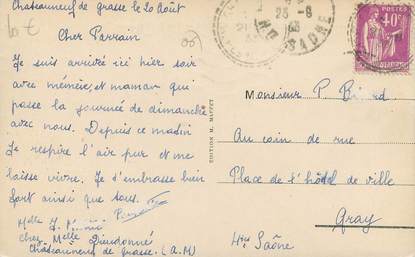 Chateauneuf de grasse le 20 Août
10 €
Cher Parrain
Je suis arrivée ici hier soir
avec mémère, et maman qui
passe la journée de dimanche
avec nous. Depuis ce matin
Je respire l'air pur et me
laisse vivre. Je t'embrasse bien
fort ainsi que tous.
Melle J.
chez Melle Dieudonné
Châteauneuf de grasse. (A.M)
EDITION M.
Hte SAONE
POSTES
40c
Monsieur P.
Au coin de rue
Place de l'hôtel de ville
Gray
Hte Saône